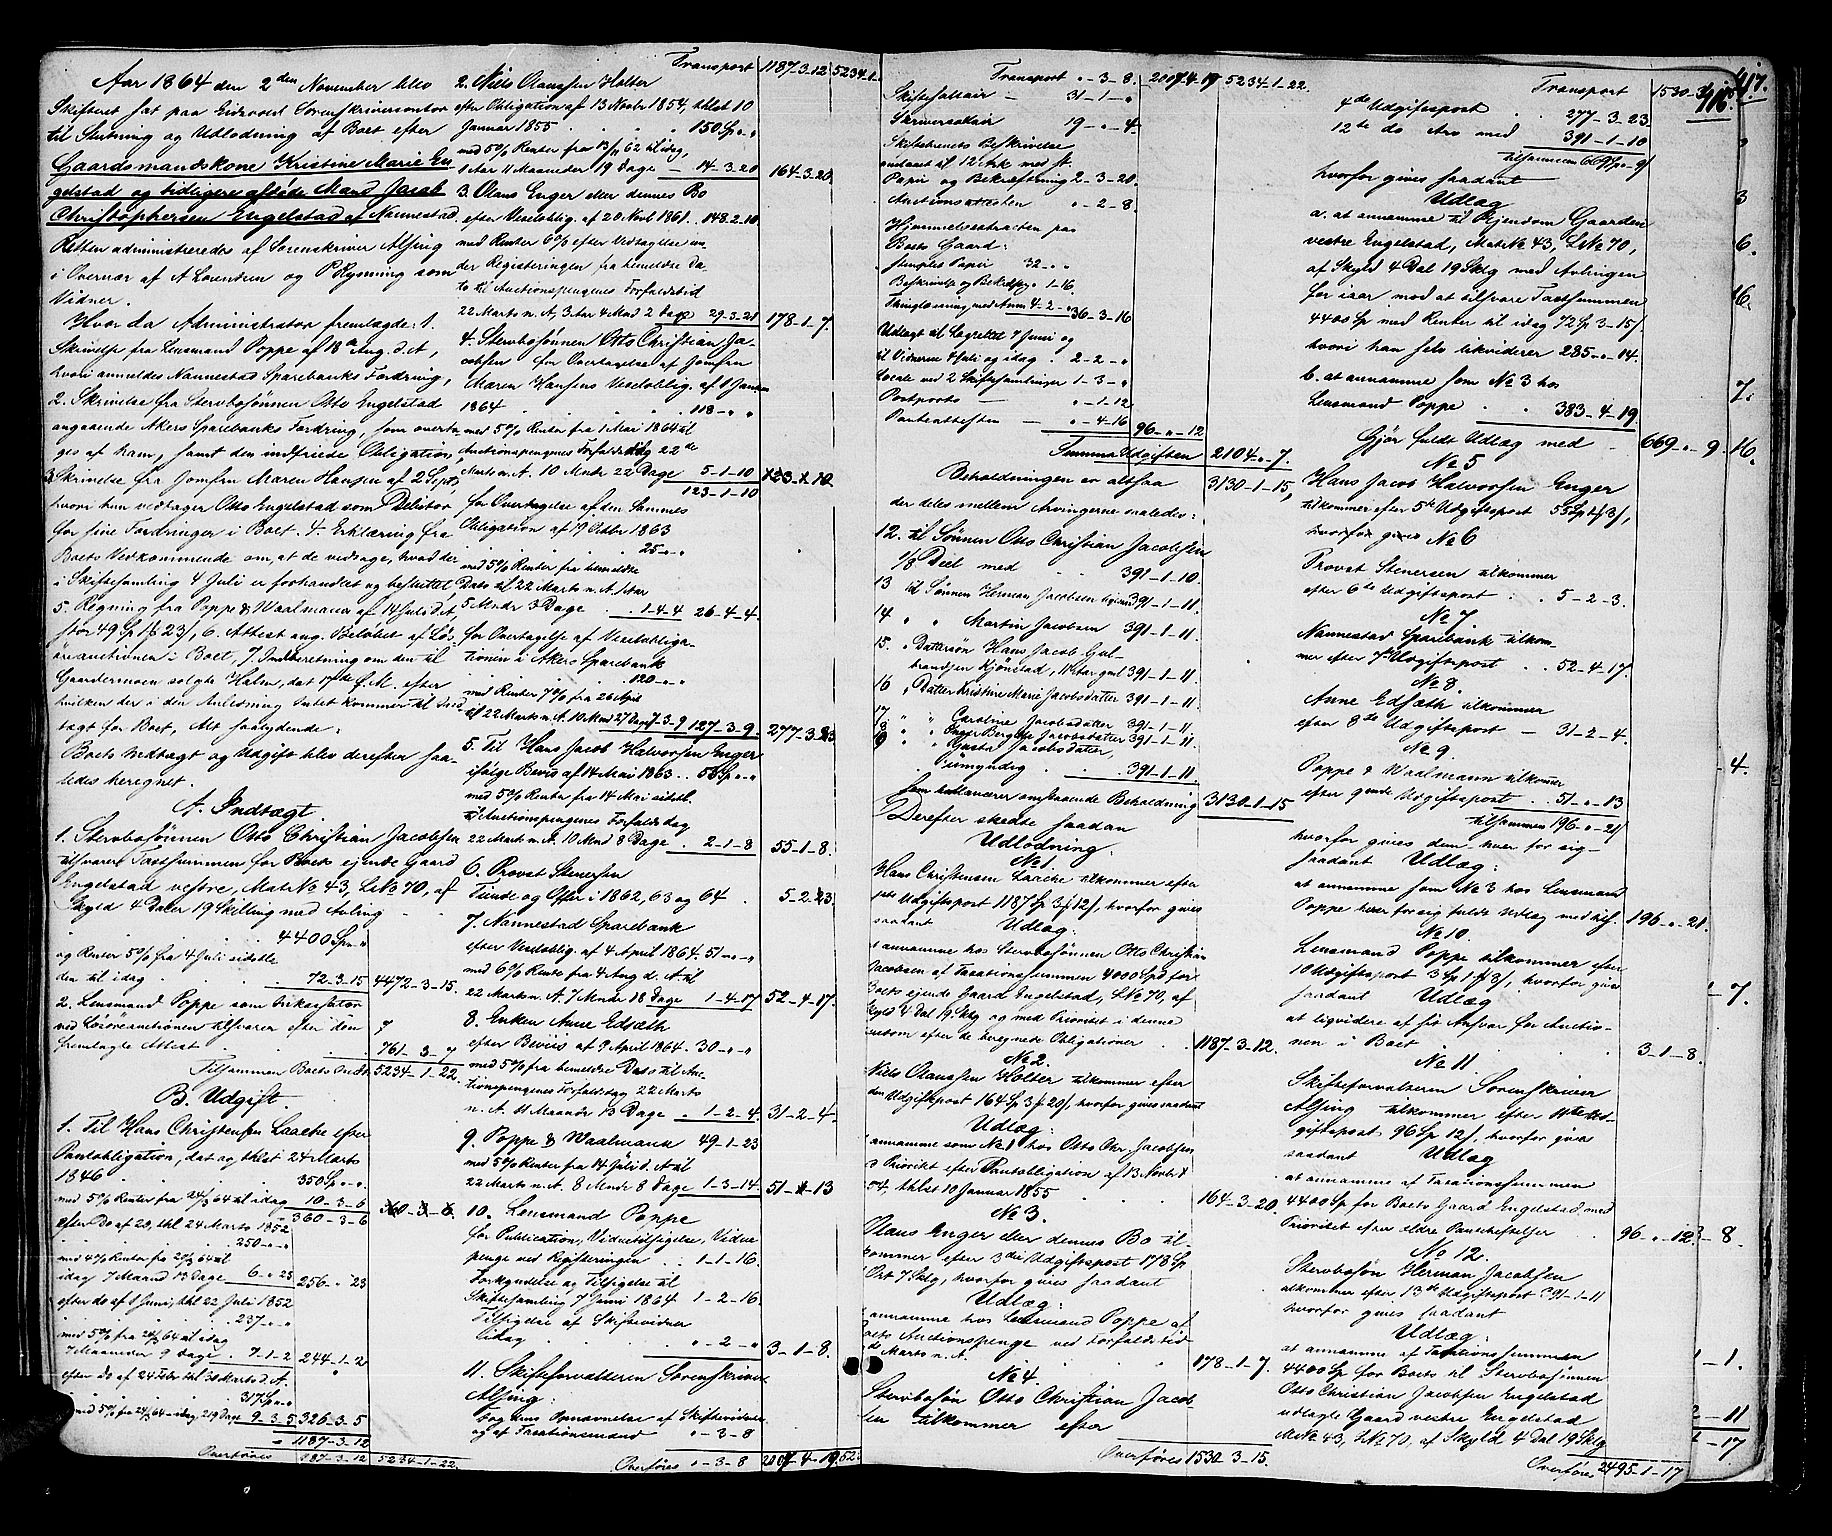 Aar 1864 den 2den November blev
Skifteret sat paa Eidsvold Sorenskrivercontor
til Slutning og Udlodning af Boet efter
Gaardmandskone Kristine Marie En
gelstad og tidligere afdøde Mand Jacob
Christophersen Engelstad af Nannestad
Retten administreredes af Sorenskriver Alsing
i Overvær af A Lorentsen og P Rynning som
Vidner.
Hvorda Administrator fremlagde: 1.
Skrivelse fra Lensmand Poppe af 18de Aug. d. A,
hvori anmeldes Nannestad Sparebanks Fordring,
2. Skrivelse fra Stervbosønnen Otto Engelstad
angaaende Akers Sparebanks Fordring, som overta-
ges af ham, samt den indfriede Obligation,
3. Skrivelse fra Jomfru Maren Hansen af 2 Sept,
hvori hun vedtager Otto Engelstad som Debitor
for sine Fordringer i Boet. 4. Erklæring fra
Boets Vedkommende om, at de vedtage, hvad der
i Skiftesamling 4 Juli er forhandlet og besluttet,
5. Regning fra Poppe & Waalmann af 14 Juli d. A,
stor 49 Sp 1 ƒ 23 ſ, 6. Attest ang. Beløbet af Løs-
øreauctionen i Boet, 7. Indberetning om den til
Gaardermoen solgte Halm, dat. 17de f. M. efter
hvilken der i den Anledning Intet kommer til Ind-
tægt for Boet, Alt saalydende:
Boets Indtægt og Udgift blev derefter saa-
ledes beregnet.
A. Indtægt.
1. Stervbosønnen Otto Christian Jacobsen
tilsvarer Taxtsummen for Boets eiende Gaard
Engelstad vestre, Mat. No 43, L No 70, af
Skyld 4 Daler 19 Skilling med Avling
4400 Sp " "
og Renter 5% fra 4 Juli sidstle
den til idag . 72-3-15 4472-3-15.
2. Lensmand Poppe som Inkassator
ved Løsøreauctionen tilsvarer efter den
fremlagte Attest . 761-3-7
Tilsammen Boets Indt. 5234-1-22.
B. Udgift.
1. Til Hans Christensen Laache efter
Pantobligation, dat og thlst 24 Marts
1846 . 350 Sp " "
med 5% Renter fra 24/3 64 til idag 10-3-6
360-3-6 360-3-6.
efter Do af 20, thl. 24 Marts 1852
250 " "
med 4% Renter fra 24/3 64 til
idag 7 Maaned 13 Dage 6 " 23 256 " 23
efter do af 1 Juni, thl 22 Juli 1852
237 " "
med 5% fra 24/3 64 til idag
7 Maaneder 9 Dage . 7-1-2 244-1-2
efter do af 24 Febr thl 30 Marts d. A.
317 Sp " "
med 5% fra 24/3 64 - idag, 219 Dage 9-3-5 326-3-5
1187-3-12
Overføres 1187-3-12 5234-1-22

Transport 1187-3-12 5234-1-
2. Niels Olaussen Holter
efter Obligation af 13 Novbr 1854, thlst 10
Januar 1855 . . 150 Sp " "
med 5% Renter fra 13/11 62 til idag,
1 Aar 11 Maaneder 19 Dage - 14-3-20 164-3-20
3. Olaus Enger eller dennes Bo
efter Vexeloblig. af 20 Novb 1861 . 148-2-10
med Renter 6% efter Vedtagelse un
der Registeringen fra bemeldte Da-
to til Auctionspengenes Forfaldstid
22 Marts n. A, 3 Aar 4 Mnd 2 Dage 29-3-21 178-1-7.
4. Stervbosønnen Otto Christian Ja-
cobsen for Overtagelse af Jomfru
Maren Hansens Vexeloblig. af 1 Januar
1864 . . 118 " "
med 5% Renter fra 1 Mai 1864 til
Auctionspengenes Forfaldsdag 22de
Marts n. A. 10 Mndr 22 Dage 5-1-10 123-1-10
123-1-10
for Overtagelse af den Sammes
Obligation af 19 Octbr 1863
25 " "
med 5% Renter fra bemeldte
Dato til 22 Marts n. A. 1 Aar
5 Mndr 3 Dage . . 1-4-4 26-4-4.
for Overtagelse af Vexelobliga-
tionen i Akers Sparebank
120 " "
med Renter 7% fra 26 April
til 22 Marts n. A. 10 Mnd 27 Dage 7-3-9 127-3-9. 277-3-23
5. Til Hans Jacob Halvorsen Enger
ifølge Bevis af 14 Mai 1863 .. 50 Sp " "
med 5% Renter fra 14 Mai sidstl.
til Auctionspengenes Forfaldsdag
22 Marts n. A. 10 Mnd 8 Dage . 2-1-8 55-1-8.
6. Provst Stenersen
Tiende og Offer i 1862, 63 og 64 . 5-2-23.
7. Nannestad Sparebank
efter Vexeloblig. af 4 April 1864 51 " "
med 6% Rente fra 4 Aug d. A til
22 Marts n. A. 7 Mndr 18 Dage 1-4-17 52-4-17.
8. Enken Anne Edsæth
efter Beviis af 9 April 1864 . 30 " "
med 5% fra bemeldte Dato til Auc-
tionspengenes Forfaldsdag 22 Marts
n. A. 11 Maander 13 Dage . 1-2-4. 31-2-4.
9. Poppe & Waalmann 49-1-23
med 5% Renter fra 14 Juli d. A til
22 Marts n. A. 8 Mndr 8 Dage 1-3-14 51-"-13
10. Lensmand Poppe
for Publication, Vidnetilsigelse, Vidne
penge ved Registeringen . . 1-1-16.
Forkyndelse og Tilsigelse til
Skiftesamling 7 Juni 1864 1-2-16.
Tilsigelse af Skiftevidner
idag . . " -2- " 3-1-8.
11. Skifteforvalteren Sorenskriver
Alsing:
for hans Opnævnelse af Skiftevidner
og af Taxationsmænd " -3-8
Overføres " -3-8 2007-4-19 52

Transport " -3-8. 2007-4-19 5234-1-22.
Skiftesallair - 31-1- "
Skriversalair 19- " -4.
Skiftebrevets Beskrivelse
andaaet til 12 Ark med st.
Papir og Bekræftning 2-3-20.
Auctionsattesten " -2-8.
Hjemmelsextracten paa
Boets Gaard:
stemplet Papir 32 " "
Beskrivelse og Bekræftn. 1-16.
Thinglæsning med Ann 4-2- " 36-3-16
Udlagt til Lagrettet 7 Juni og
til Vidnerne 4 Juli og idag . 2-2- "
Locale ved 2 Skiftesamlinger 1-3- "
Postporto - " -1-12
Panteattesten - " -4-16 96- " -12
Summa Udgiften 2104- " -7.
Beholdningen er altsaa 3130-1-15,
der deles mellem Arvingerne saaledes:
12. til Sønnen Otto Christian Jacobsen
1/8 Deel med . 391-1-10.
13 til Sønnen Herman Jacobsen ligesaa 391-1-11.
14 " " Martin Jacobsen 391-1-11.
15. " Dattersøn Hans Jacob Gul-
brandsen Kjønstad, 11 Aar gml 391-1-11.
16 " Datter Kristine Marie Jacobsdatter 391-1-11.
17 " " Caroline Jacobsdatter 391-1-11.
18 " " Inger Bergitte Jacobsdatter 391-1-11.
19 " " Gusta Jacobsdatter,
umyndig . . 391-1-11.
som ballancerer omstaaende Beholdning 3130-1-15
Derefter skedte saadan
Udlodning:
No 1.
Hans Christensen Laache tilkommer efter
1ste Udgiftspost 1187 Sp 3 ƒ 12 ſ, hvorfor gives
saadant Udlæg:
at annamme hos Stervbosønnen Otto Christian
Jacobsen af Taxationssummen 4000 Spd for
Boets eiende Gaard Engelstad, L No 70, af
Skyld 4 Dal 19 Sktg og med Prioritet i denne
Eiendom efter de beregnede Obligationer . . 1187-3-12.
No 2.
Niels Olaussen Holter tilkommer efter
den Udgiftspost 164 Sp 3 ƒ 20 ſ, hvorfor gives saadant
Udlæg:
annamme som No 1 hos Otto Chr. Jacobsen
d Prioritet efter Pantobligation af 13 Novbr 1
54, thlst 10 Januar 1855 . 164-3-20.
No 3.
Olaus Enger eller dennes Bo til-
kommer efter 3die Udgiftspost 178 Sp
1 Ort 7 Sktg, hvorfor gives saadant
Udlæg:
annamme hos Lensmand Poppe af
Boets Auctionspenge ved Forfaldstid
22de Marts n. A. . 178-1-7.
No 4.
Stervbosøn Otto Christian Jacob-
sen tilkommer efter
Overføres 1530-3-15.

Transport 1530-3-15
416. 417.
4de Udgiftspost . . 277-3-23
12te do Arv med 391-1-10
tilsammen 669 Sp " 9 ſ
hvorfor gives saadant
Udlæg
a. at annamme til Ejendom Gaarden
vestre Engelstad, Mat No 43, L No 70,
af Skyld 4 Dal 19 Sktg med Avlingen
for iaar mod at tilsvare Taxtsummen
4400 Sp med Renter til idag 72 Sp 3-15 ſ
hvori han selv likviderer 285- " -14.
b. at annamme som No 3 hos
Lensmand Poppe . . 383-4-19.
Gjør fuldt Udlæg med - 669- " -9
No 5
Hans Jacob Halvorsen Enger
tilkommer efter 5te Udgiftspost 55 Sp 1 ƒ 8 ſ,
hvorfor gives
No 6
Provst Stenersen tilkommer
efter 6te Udgiftspost . . 5-2-3.
No 7.
Nannestad Sparebank tilkom-
mer efter 7de Udgiftspost . . 52-4-17.
No 8.
Anne Edsæth tilkommer
efter 8de Udgiftspost - 31-2-4.
No 9.
Poppe & Waalmann tilkommer
efter 9ende Udgiftspost . . 51- " -13
tilsammen 196- " -21
hvorfor gives dem hver for sig
saadant Udlæg:
at annamme som No 3 hos Lensmand
Poppe hver for sig fuldt Udlæg med tils. 196- " -21.
No 10.
Lensmand Poppe tilkommer efter
10 Udgiftspost 3 Sp 1 ƒ 8 ſ, hvorfor gives
saadant Udlæg
at liqvidere af sit Ansvar for Auctio-
nen i Boet . 3-1-8.
No 11.
Skifteforvalteren Sorenskriver
Alsing tilkommer efter 11te Ud-
giftspost 96 Sp 12 ſ, hvorfor gives
saadant Udlæg
at annamme af Taxationssummen
4400 Sp for Boets Gaard Engelstad, med
Prioritet efter eldre Panteheftelser . 96- " -12
No 12.
Stervbosøn Herman Jacobsen
tilkommer efter 13de Udgiftspost 391-1-11
hvorfor gives saadant
Udlæg:
at annamme af Taxtionssummen
4400 Sp for Boets til Stervbosønnen
Otto Christian Jacobsen Engelstad
udlagte Gaard vestre Engelstad
Mt No 43, L No 70, af Skyld 4 Dal 19 Sktg
Overføres 2495-1-17
3
6.
16.
7.
16.
4.
1-7.
3-8.
1-1.
2-11
1-17